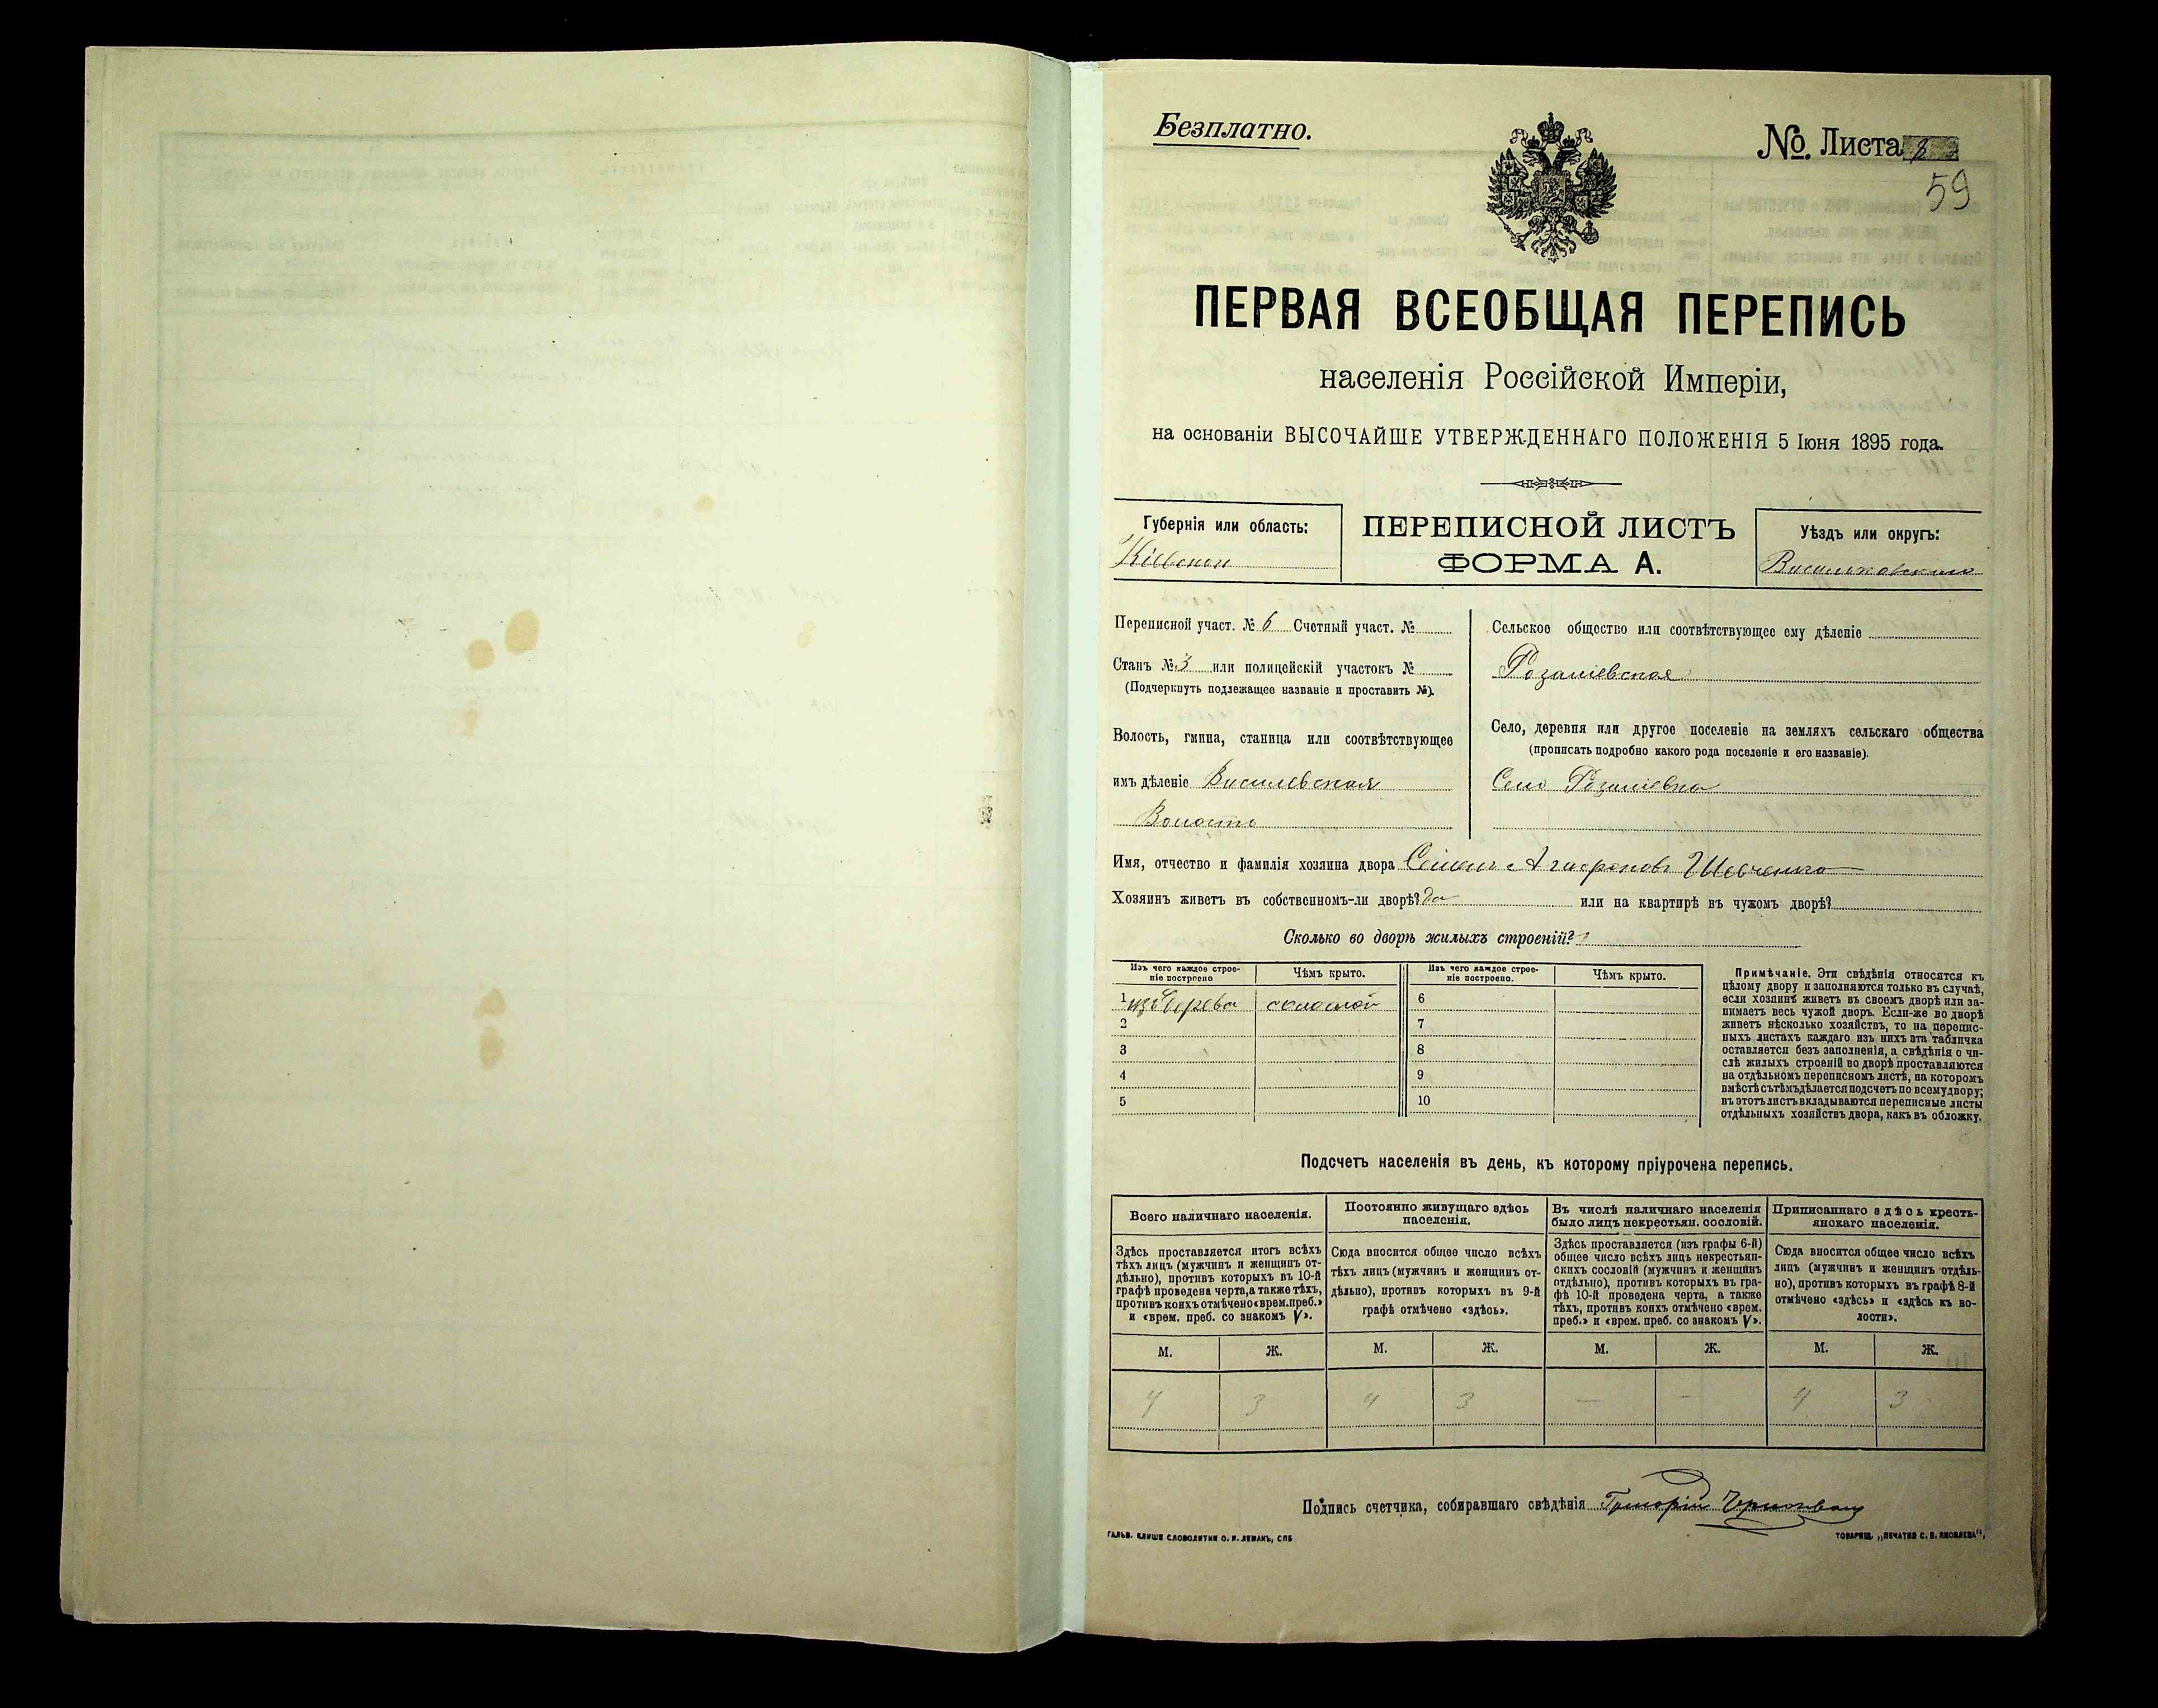 Безплатно.
№. Листа 8
59
ПЕРВАЯ ВСЕОБЩАЯ ПЕРЕПИСЬ
населенія Россійской Имперіи,
на основаніи ВЫСОЧАЙШЕ УТВЕРЖДЕННАГО ПОЛОЖЕНІЯ 5 Іюня 1895 года.
Губернія или область:
Кіевская
ПЕРЕПИСНОЙ ЛИСТЪ
ФОРМА А.
Уѣздъ или округъ:
Васильковскаго
Переписной участ. № 6 Счетный участ. №
Станъ № 3 или полицейскій участокъ №
(Подчеркнуть подлежащее названіе и проставить №).
Волость, гмина, станица или соотвѣтствующее
имъ дѣленіе Василевская
Волость
Сельское общество или соотвѣтствующее ему дѣленіе
Розаліевская
Село, деревня или другое поселеніе на земляхъ сельскаго общества
(прописать подробно какого рода поселеніе и его названіе).
Село Розаліевка
Имя, отчество и фамилія хозяина двора Семенъ Агафоновъ Шевченко
Хозяинъ живетъ въ собственномъ-ли дворѣ? да или на квартирѣ въ чужомъ дворѣ?
Сколько во дворѣ жилыхъ строеній? 1
Изъ чего каждое строе-
ніе построено
Чѣмъ крыто.
Изъ чего каждое строе-
ніе построено.
Чѣмъ крыто.
1 изъ дерева соломой 6
2 7
3 8
4 9
5 10
Примѣчаніе. Эти свѣдѣнія относятся къ
цѣлому двору и заполняются только въ случаѣ,
если хозяинъ живетъ въ своемъ дворѣ или за-
нимаетъ весь чужой дворъ. Если-же во дворѣ
живетъ нѣсколько хозяйствъ, то на перепис-
ныхъ листахъ каждаго изъ нихъ эта табличка
оставляется безъ заполненія, а свѣдѣнія о чи-
слѣ жилыхъ строеній во дворѣ проставляются
на отдѣльномъ переписномъ листѣ, на которомъ
вмѣстѣ съ тѣмъ дѣлается подсчетъ по всему двору;
въ этотъ листъ вкладываются переписные листы
отдѣльныхъ хозяйствъ двора, какъ въ обложку.
Подсчетъ населенія въ день, къ которому пріурочена перепись.
Всего наличнаго населенія.
Постоянно живущаго здѣсь
населенія.
Въ числѣ наличнаго населенія
было лицъ некрестьян. сословій.
Приписаннаго здѣсь кресть-
янскаго населенія.
Здѣсь проставляется итогъ всѣхъ
тѣхъ лицъ (мужчинъ и женщинъ от-
дѣльно), противъ которыхъ въ 10-й
графѣ проведена черта, а также тѣхъ,
противъ коихъ отмѣчено «врем. преб.»
и «врем. преб. со знакомъ V».
Сюда вносится общее число всѣхъ
тѣхъ лицъ (мужчинъ и женщинъ от-
дѣльно), противъ которыхъ въ 9-й
графѣ отмѣчено «здѣсь».
Здѣсь проставляется (изъ графы 6-й)
общее число всѣхъ лицъ некрестьян-
скихъ сословій (мужчинъ и женщинъ
отдѣльно), противъ которыхъ въ гра-
фѣ 10-й проведена черта, а также
тѣхъ, противъ коихъ отмѣчено «врем.
преб.» и «врем. преб. со знакомъ V».
Сюда вносится общее число всѣхъ
лицъ (мужчинъ и женщинъ отдѣль-
но), противъ которыхъ въ графѣ 8-й
отмѣчено «здѣсь» и «здѣсь къ во-
лости».
М. Ж. М. Ж. М. Ж. М. Ж.
4 3 4 3 — - 4 3
Подпись счетчика, собиравшаго свѣдѣнія Григорій
ГАЛЬВ. КЛИШЕ СЛОВОЛИТНИ О. И. ЛЕМАНЪ, СПБ
ТОВАРИЩ. „ПЕЧАТНЯ С. П. ЯКОВЛЕВА",